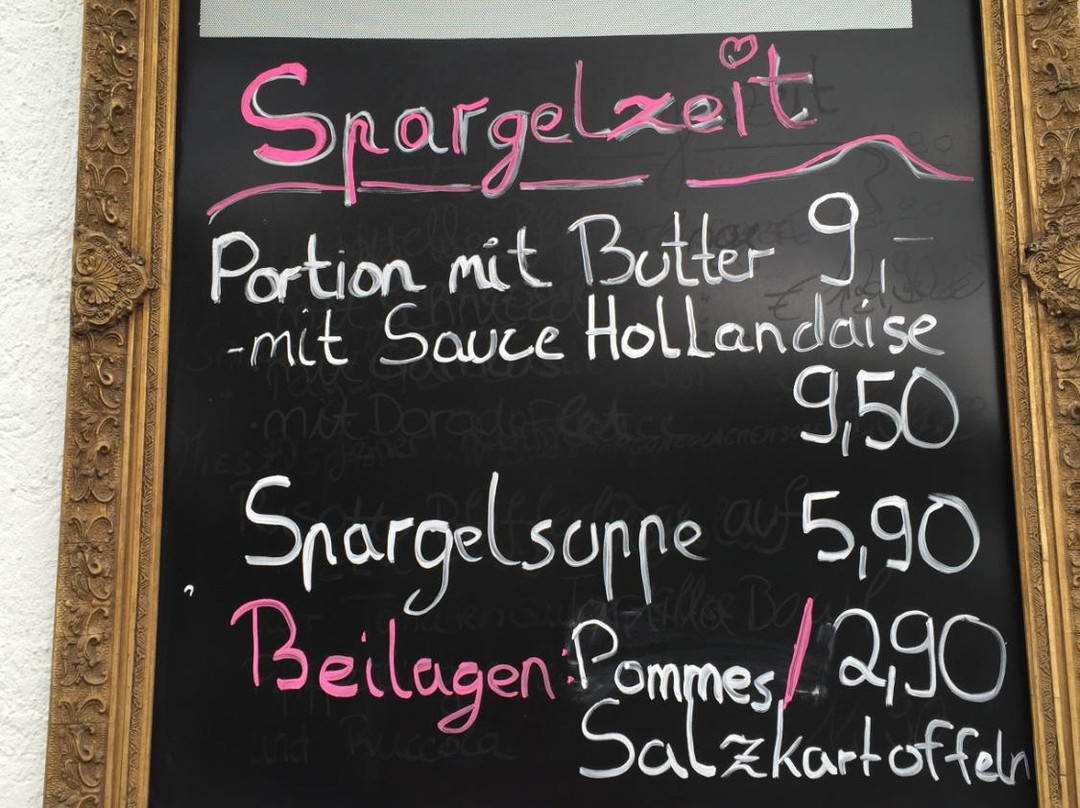 Spargelzeit
Portion mit Butter 9,-
-mit Sauce Hollandaise
9,50
Spargelsuppe 5,90
Beilagen: Pommes/ 2,90
Salzkartoffeln